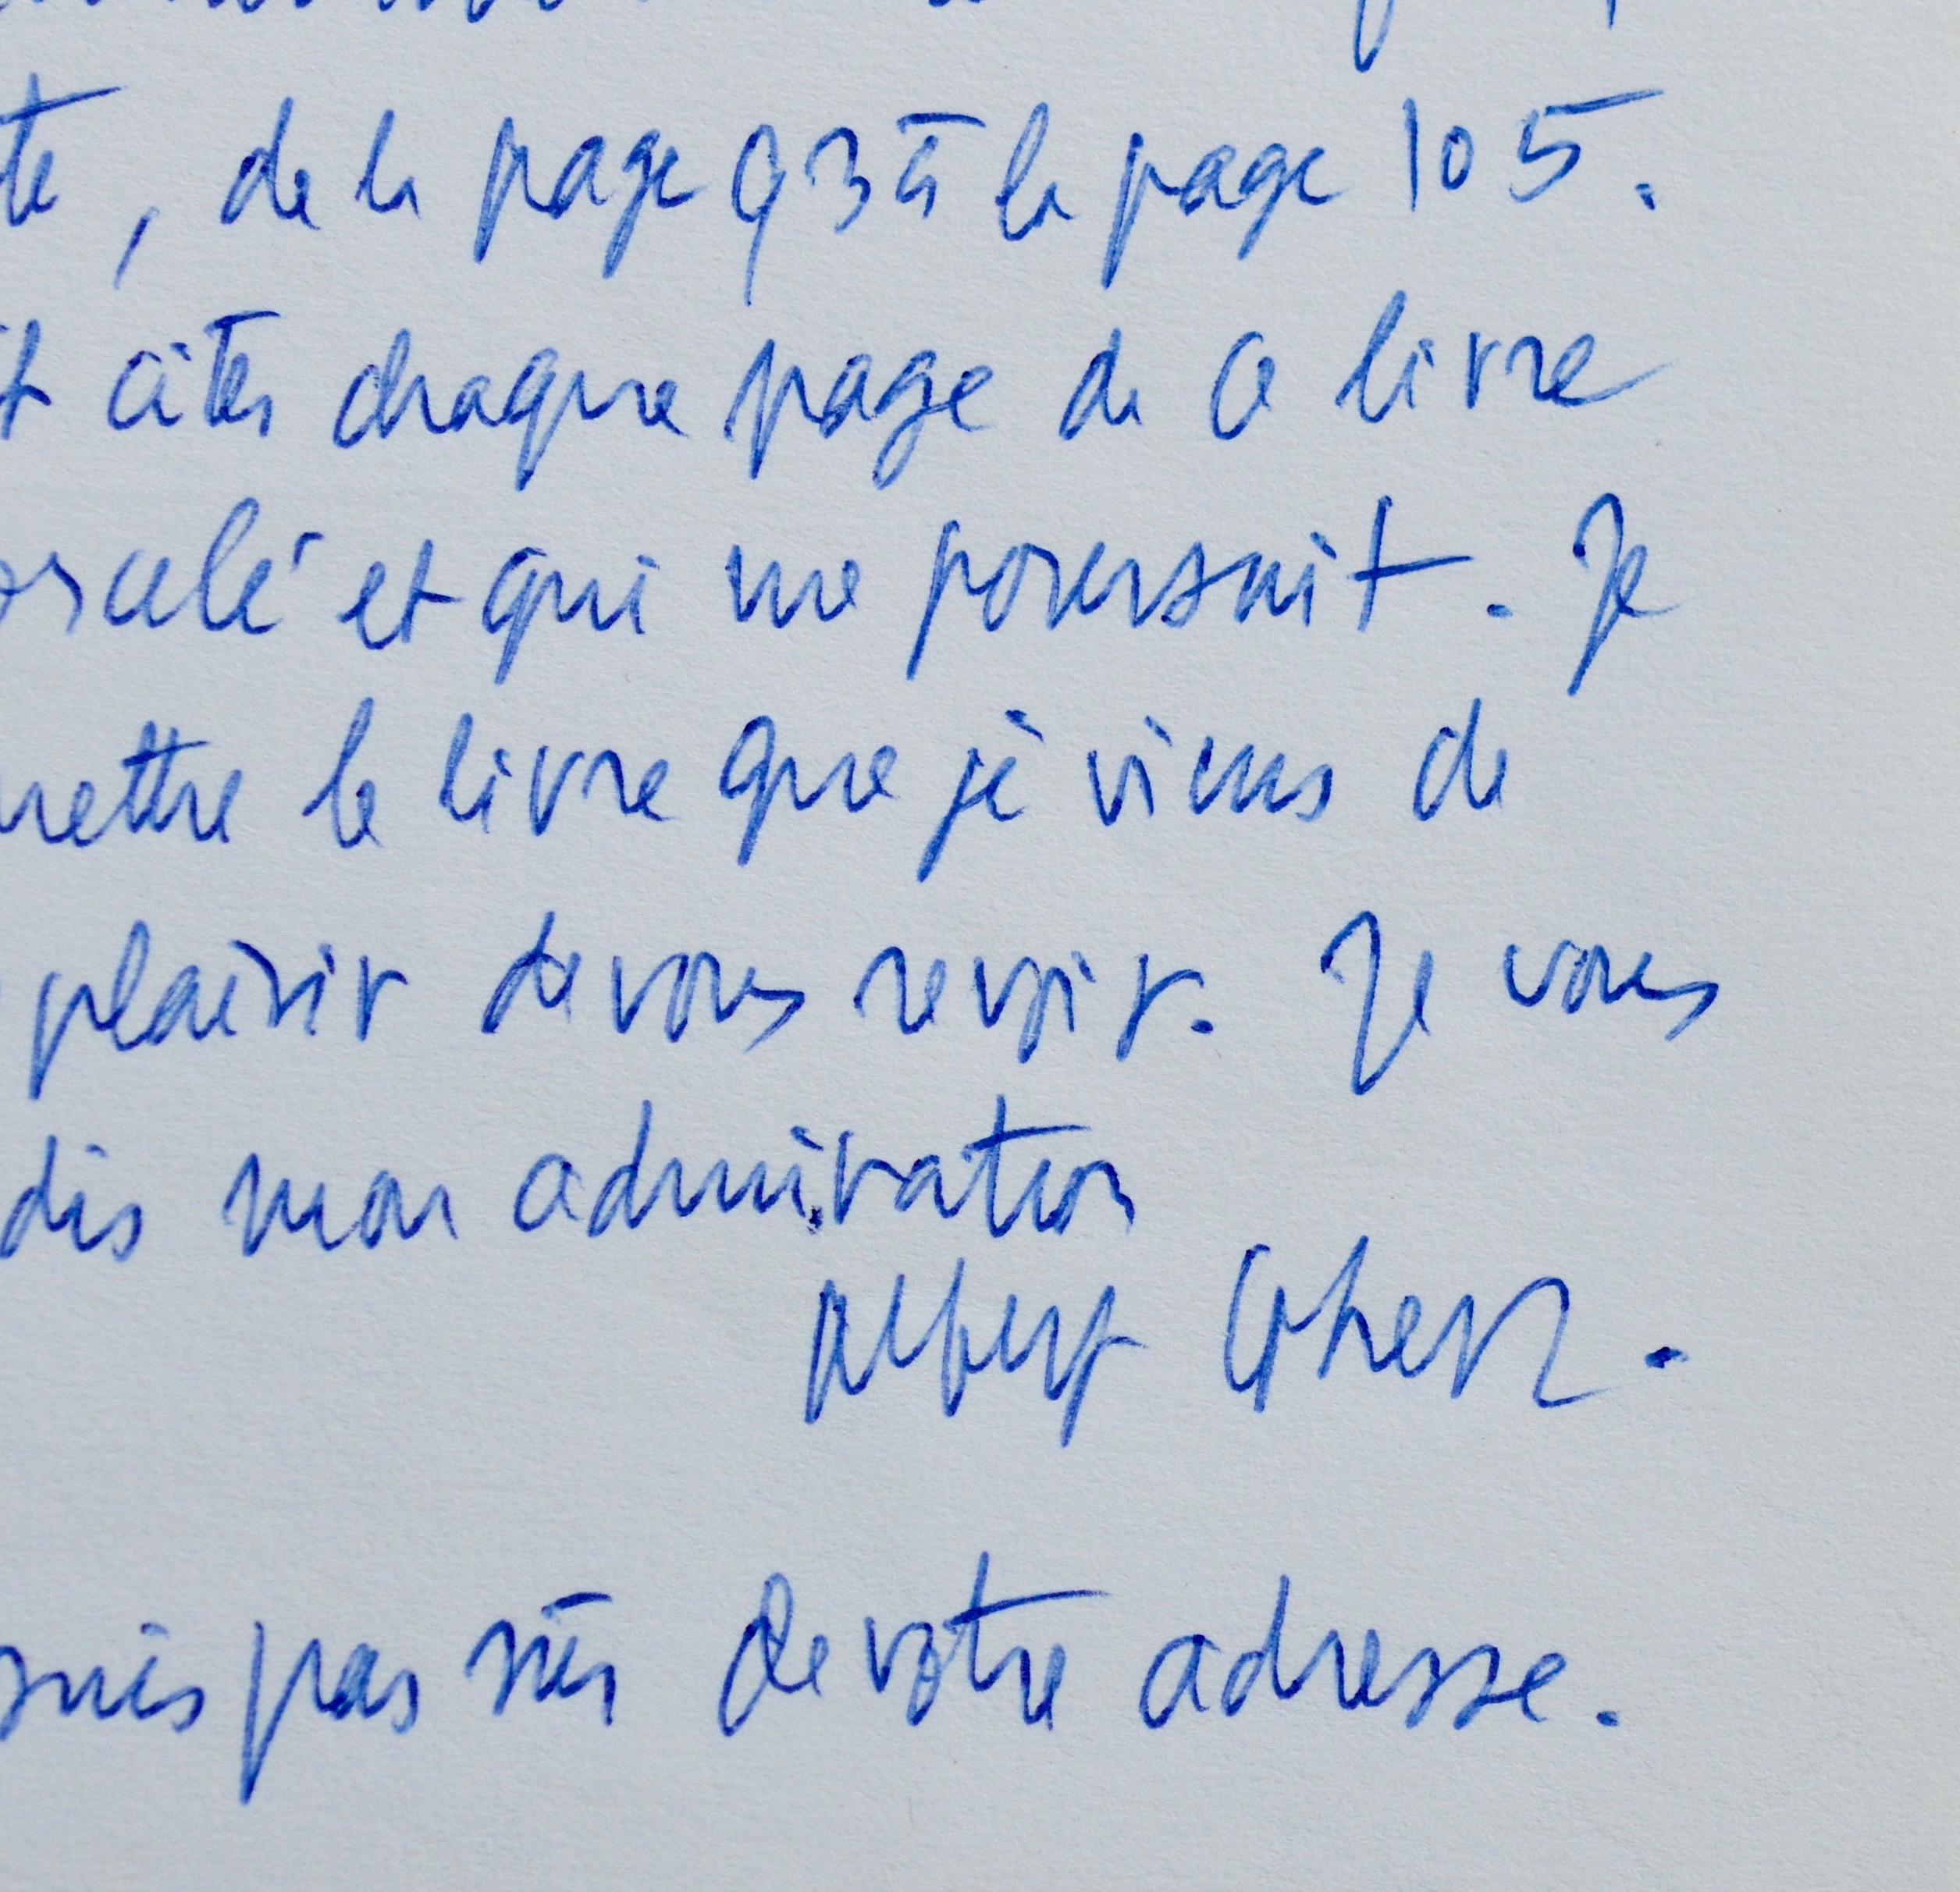 te, de la page 93 à la page 105.
it citer chaque page de ce livre
et qui me poursuit. Je
mettre le livre que je viens de
plaisir de vous revoir. Je vous
dis mon admiration
Albert Cohen.
suis pas sûr de votre adresse.